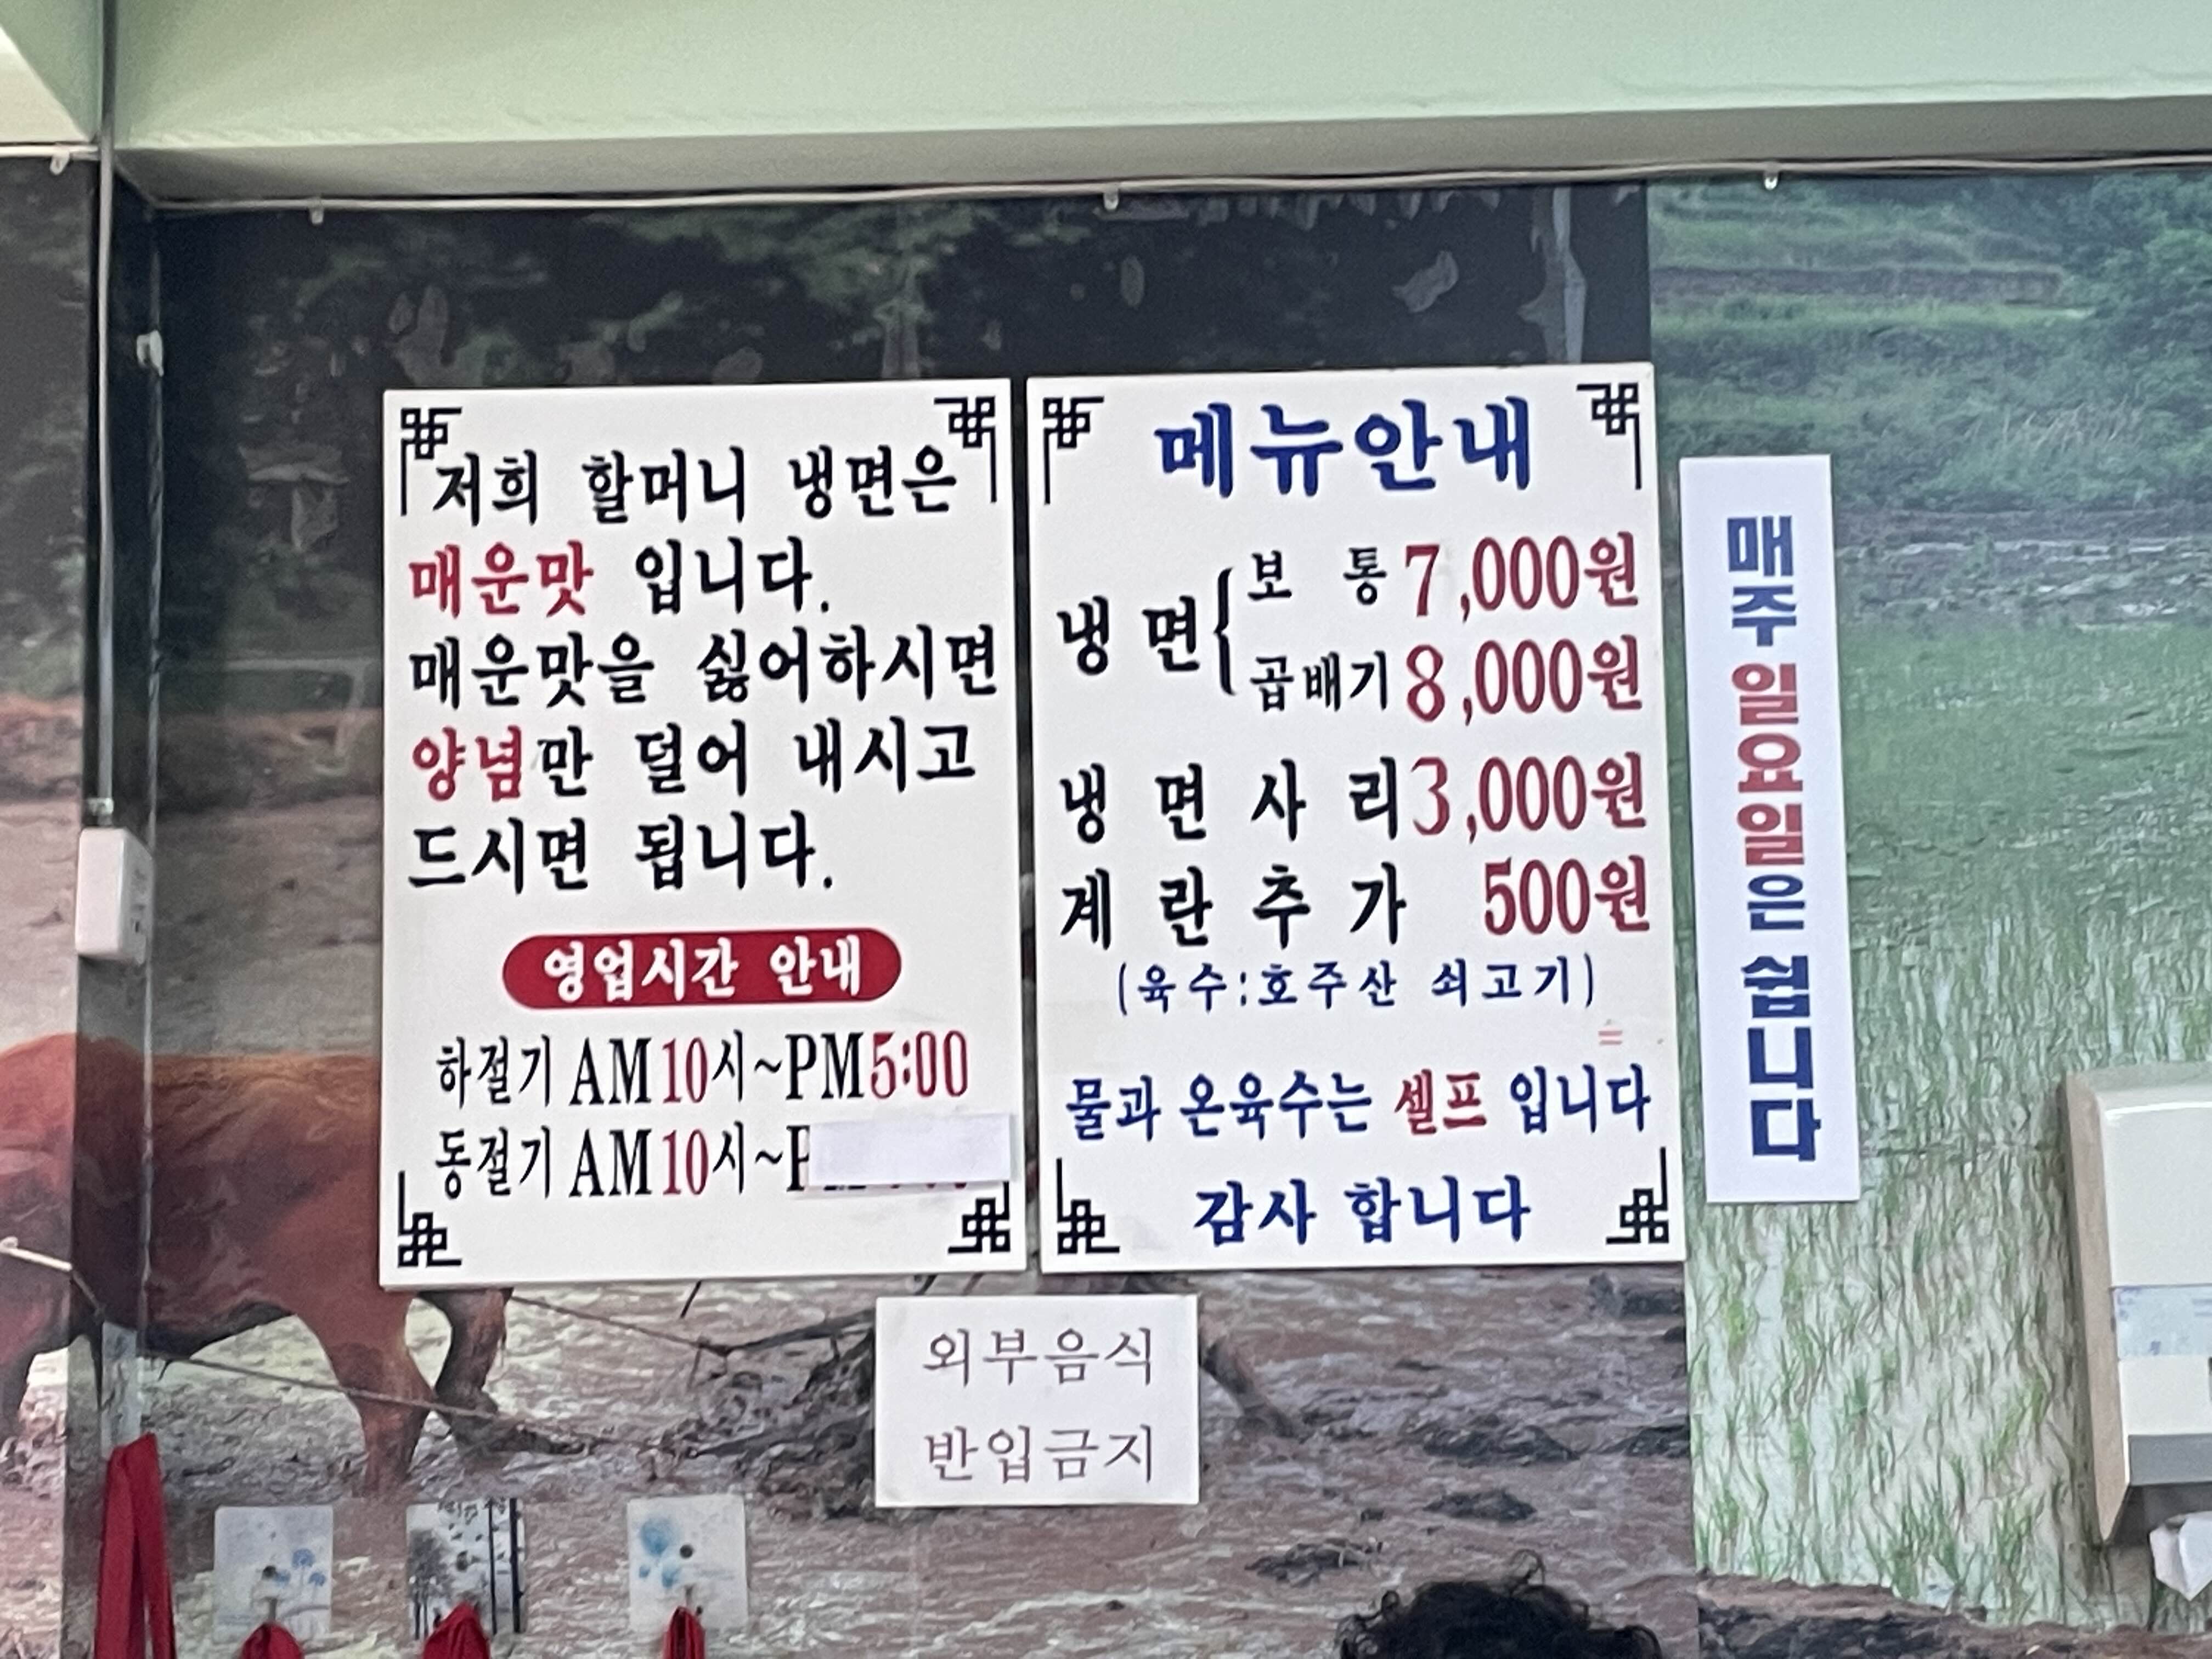 저희 할머니 냉면은
매운맛 입니다.
매운맛을 싫어하시면
양념만 덜어 내시고
드시면 됩니다.
영업시간 안내
하절기 AM10시~PM5:00
동절기 AM10시~
메뉴안내
냉면 { 보통 7,000원
곱배기 8,000원
냉면사리 3,000원
계란추가 500원
(육수:호주산 쇠고기)
물과 온육수는 셀프 입니다
감사 합니다
매주 일요일은 쉽니다
외부음식
반입금지